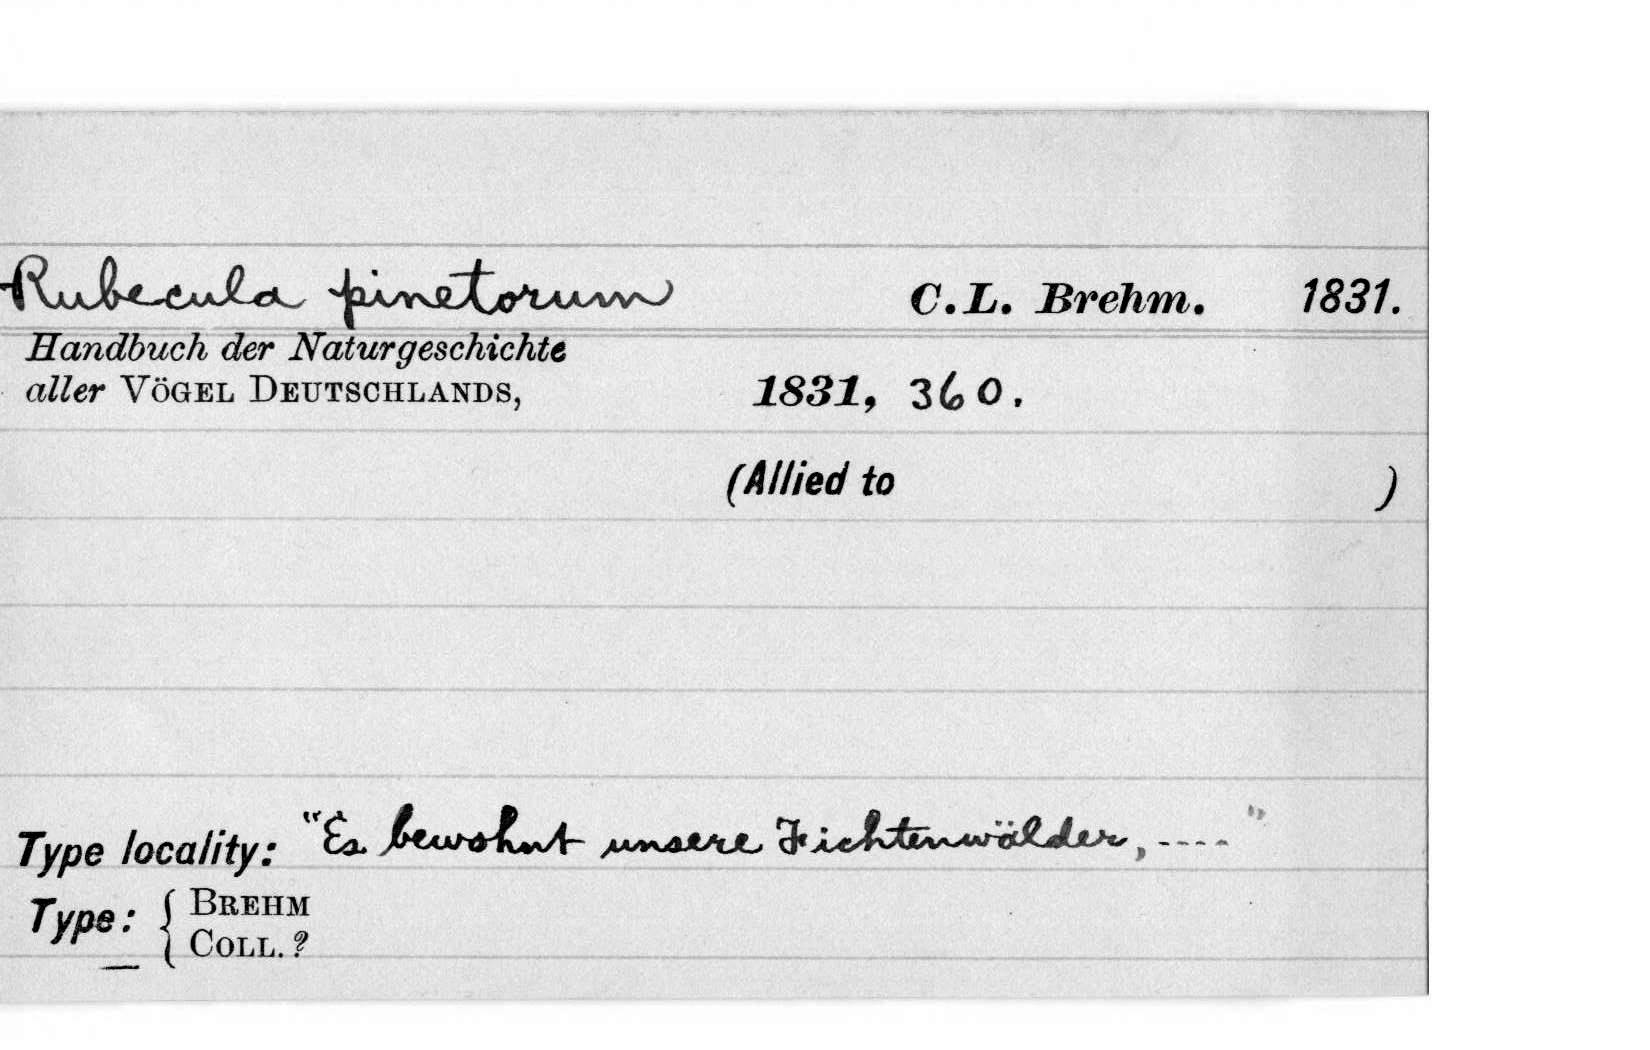 Rubecula pinetorum C.L. Brehm. 1831.
Handbuch der Naturgeschichte
aller VÖGEL DEUTSCHLANDS, 1831, 360.
(Allied to )
Type locality: "Es bewohnt unsere Fichtenwälder, ---- "
Type: { BREHM
COLL. ?